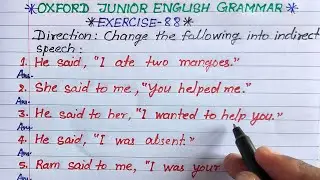 *OXFORD JUNIOR ENGLISH GRAMMAR*
*EXERCISE-88*
Direction: Change the following into indirect
speech:
1. He said, "I ate two mangoes."
Ans.
2. She said to me, "You helped me."
Ans.
3. He said to her, "I wanted to help you."
Ans.
4. He said, "I was absent."
Ans.
5. Ram said to me, "I was your
Ans.